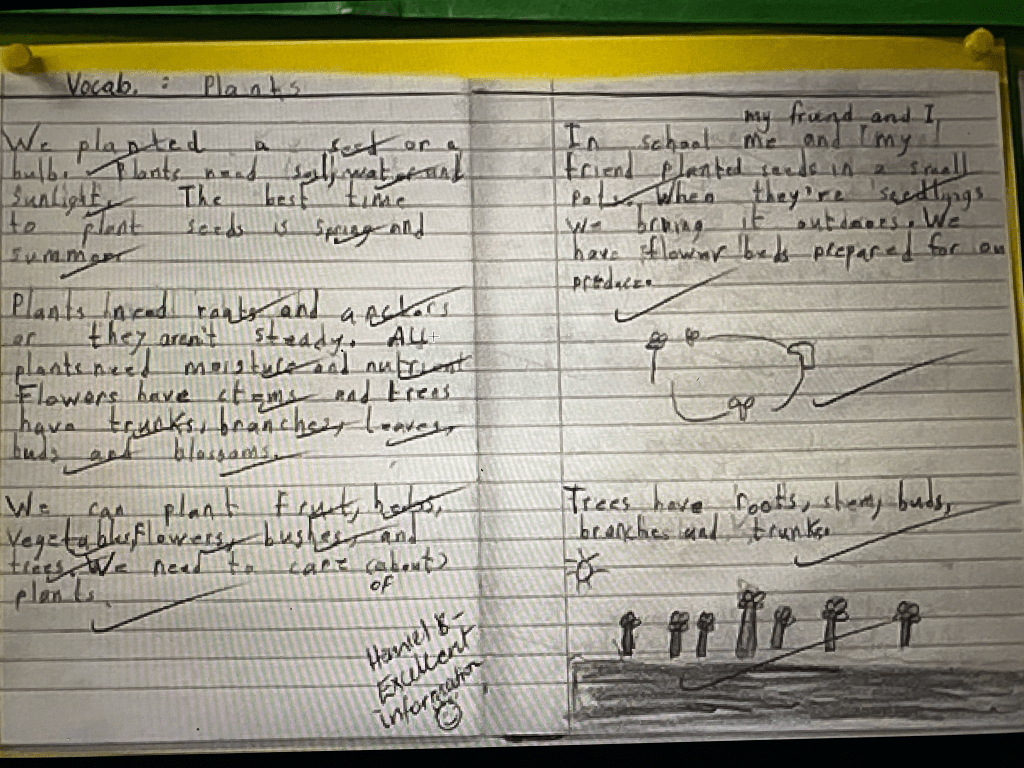 Vocab. : Plants
We planted a seet or a
bulb. Plants need soil, water and
sunlight. The best time
to plant seeds is spring and
summer
Plants need roots and anctors
or they aren't steady. All
plants need moisture and nutrient
Flowers have stems and trees
have trunks, branches, leaves,
buds and blossoms.
We can plant fruit, herbs,
vegetables, flowers, bushes, and
trees. We need to care (about)
of
plants.
Haniel B-
Excellent
information
my friend and I,
In school me and my
friend planted seeds in a small
pots. When they're seedlings
we bring it outdoors. We
have flower beds prepared for our
produce.
Trees have roots, stem, buds,
branches and trunks.